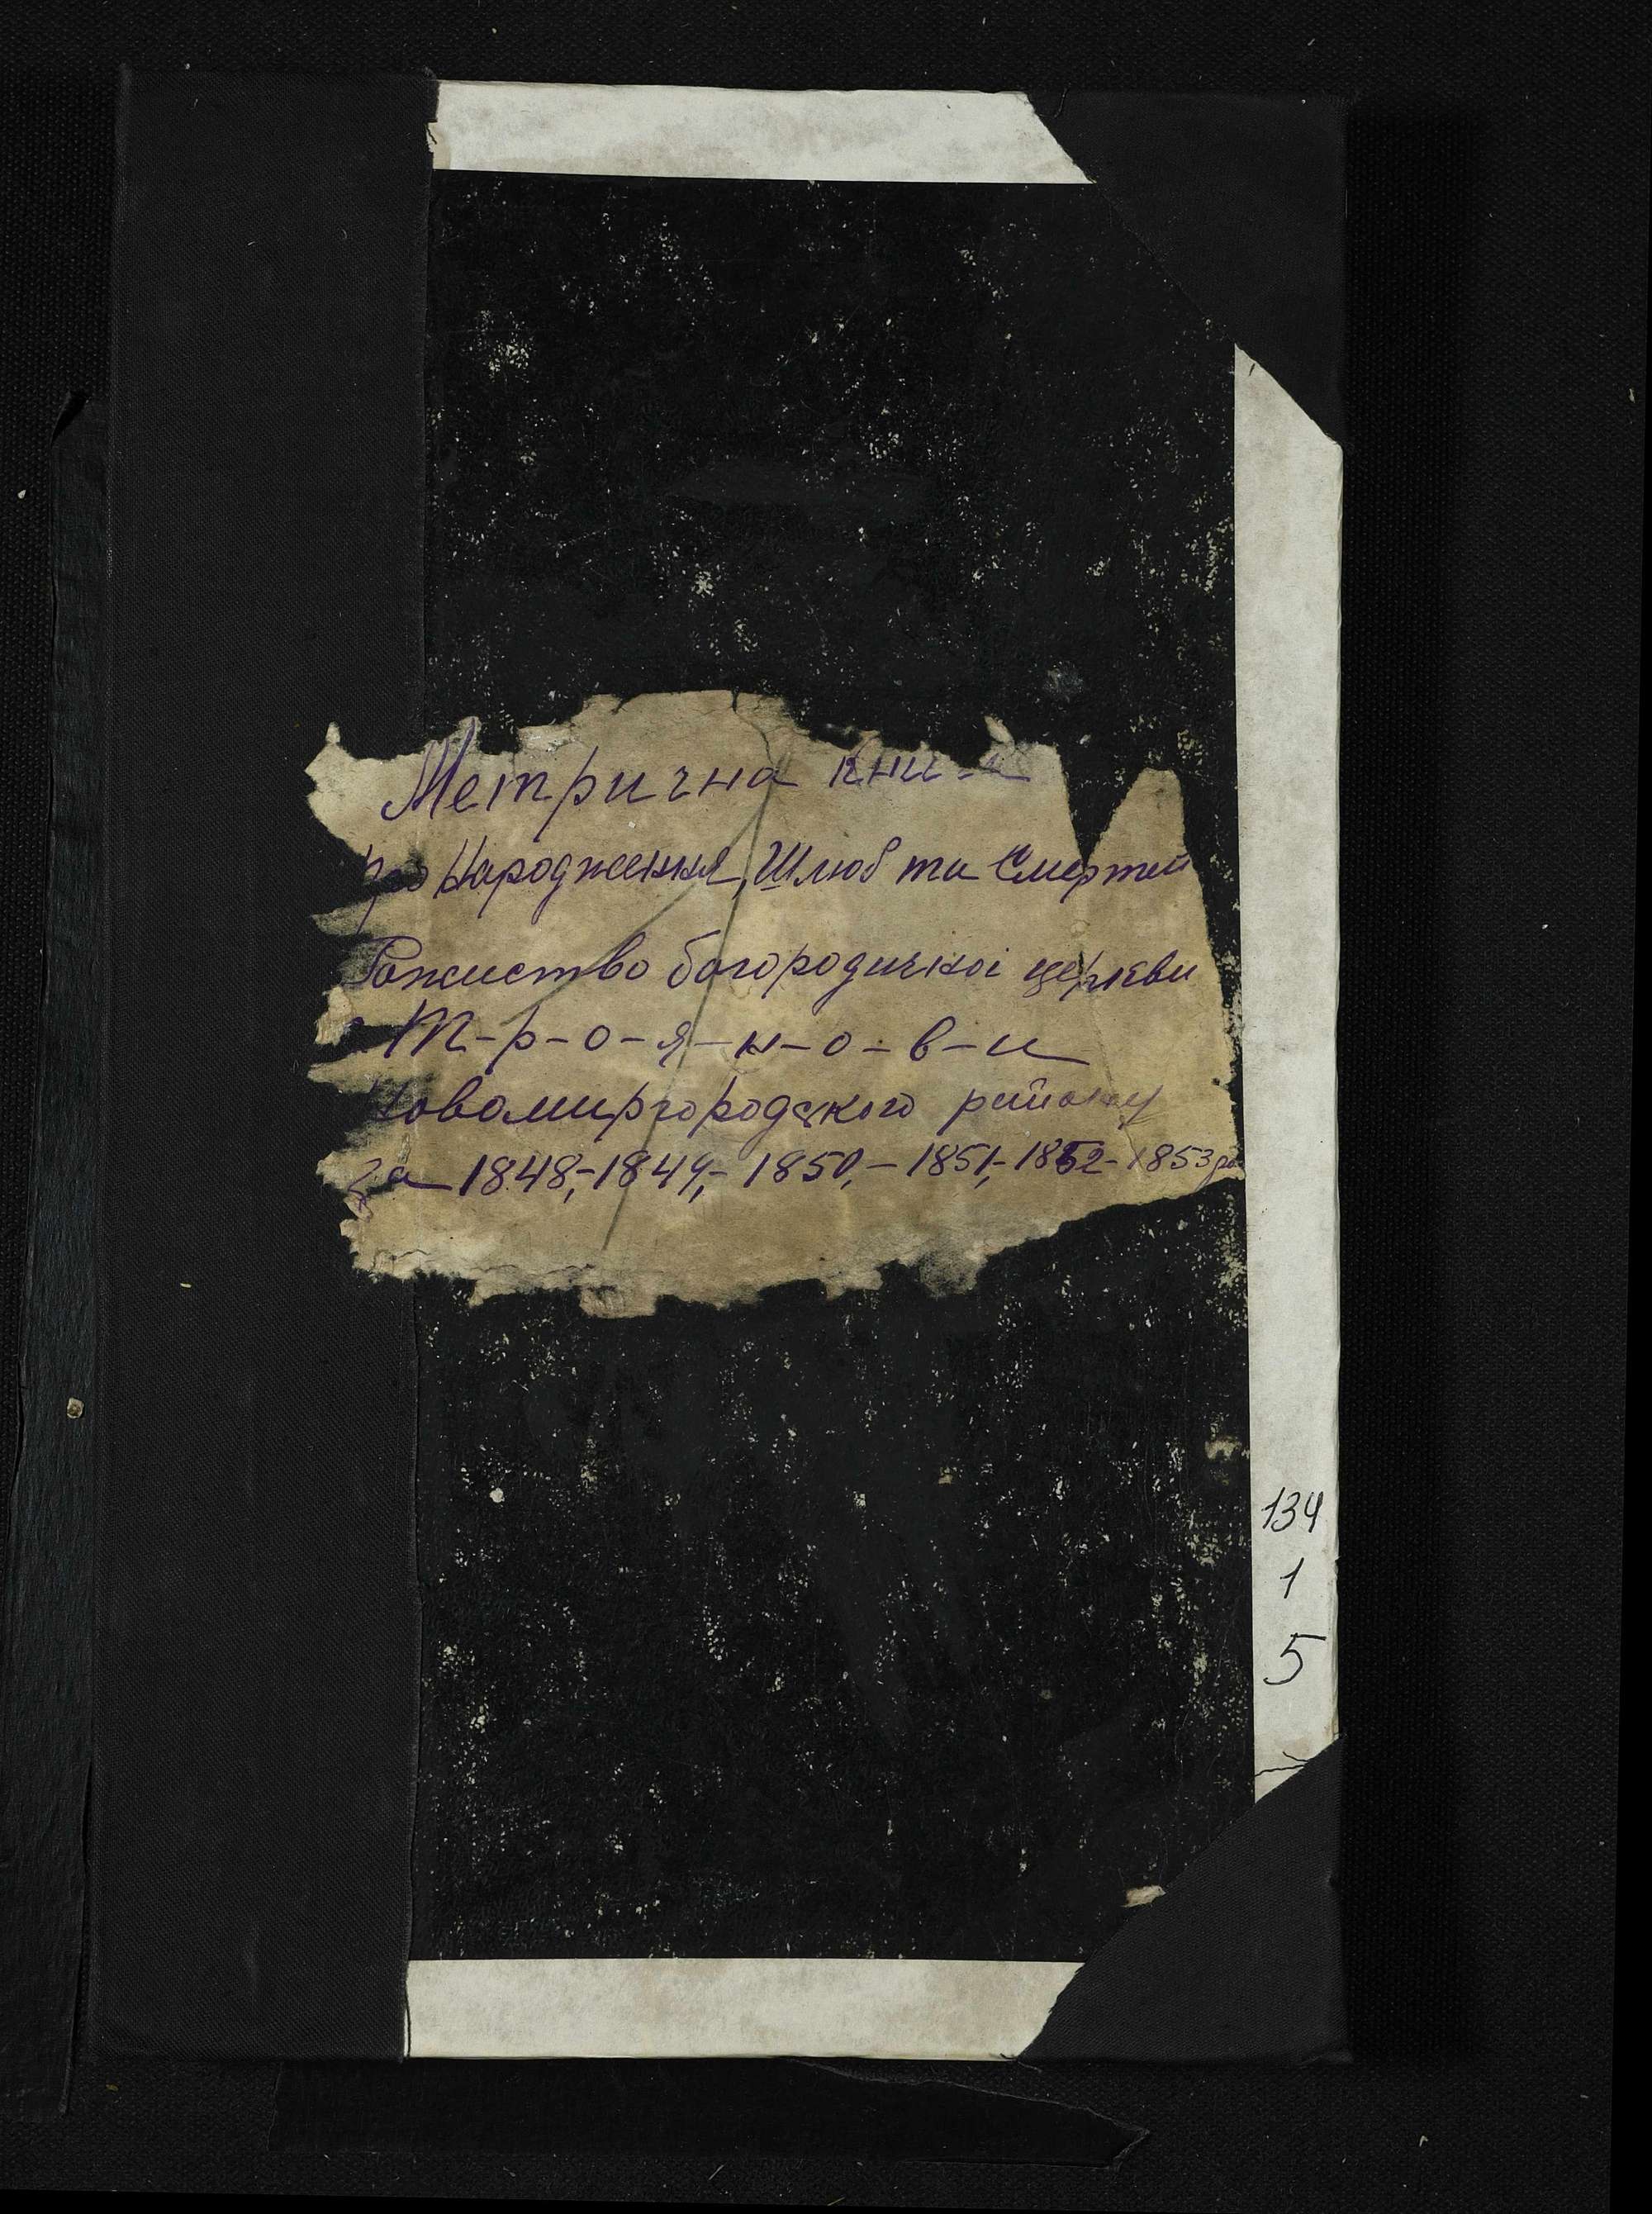 Метрична книга
про Народження, Шлюб та Смертей
Рожиство богородичної церкви
Т-р-о-я-н-о-в-и
Новомиргородського району
за 1848,-1849,- 1850,- 1851,- 1852- 1853
134
1
5